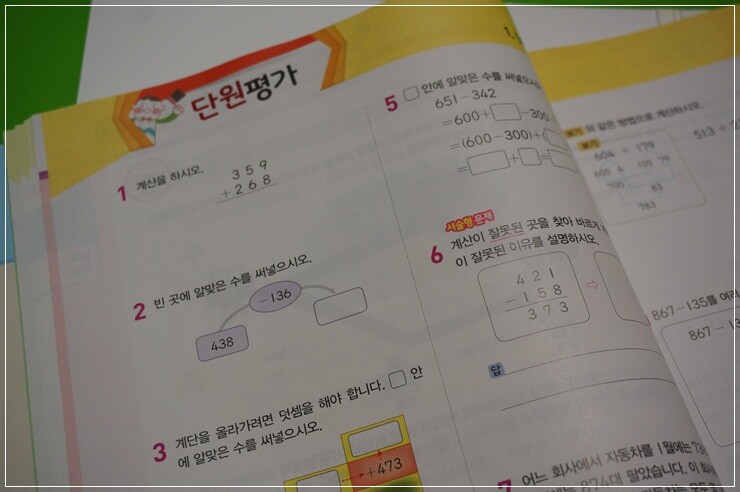 단원평가
1 계산을 하시오.
359
+268
2 빈 곳에 알맞은 수를 써넣으시오.
-136
438
3 계단을 올라가려면 덧셈을 해야 합니다. □ 안
에 알맞은 수를 써넣으시오.
+473
5 □ 안에 알맞은 수를 써넣으시오
651-342
=600+□-300
=(600-300)+(
=□+□=
서술형 문제
6 계산이 잘못된 곳을 찾아 바르게
이 잘못된 이유를 설명하시오.
421
-158
373
답
7 어느 회사에서 자동차를 1월에는
874대 팔았습니다. 이
보기 와 같은 방법으로 계산하시오.
보기
604 + 179
600 4 100 79
700 83
783
513 + 2
867-135를 여러
867 - 13